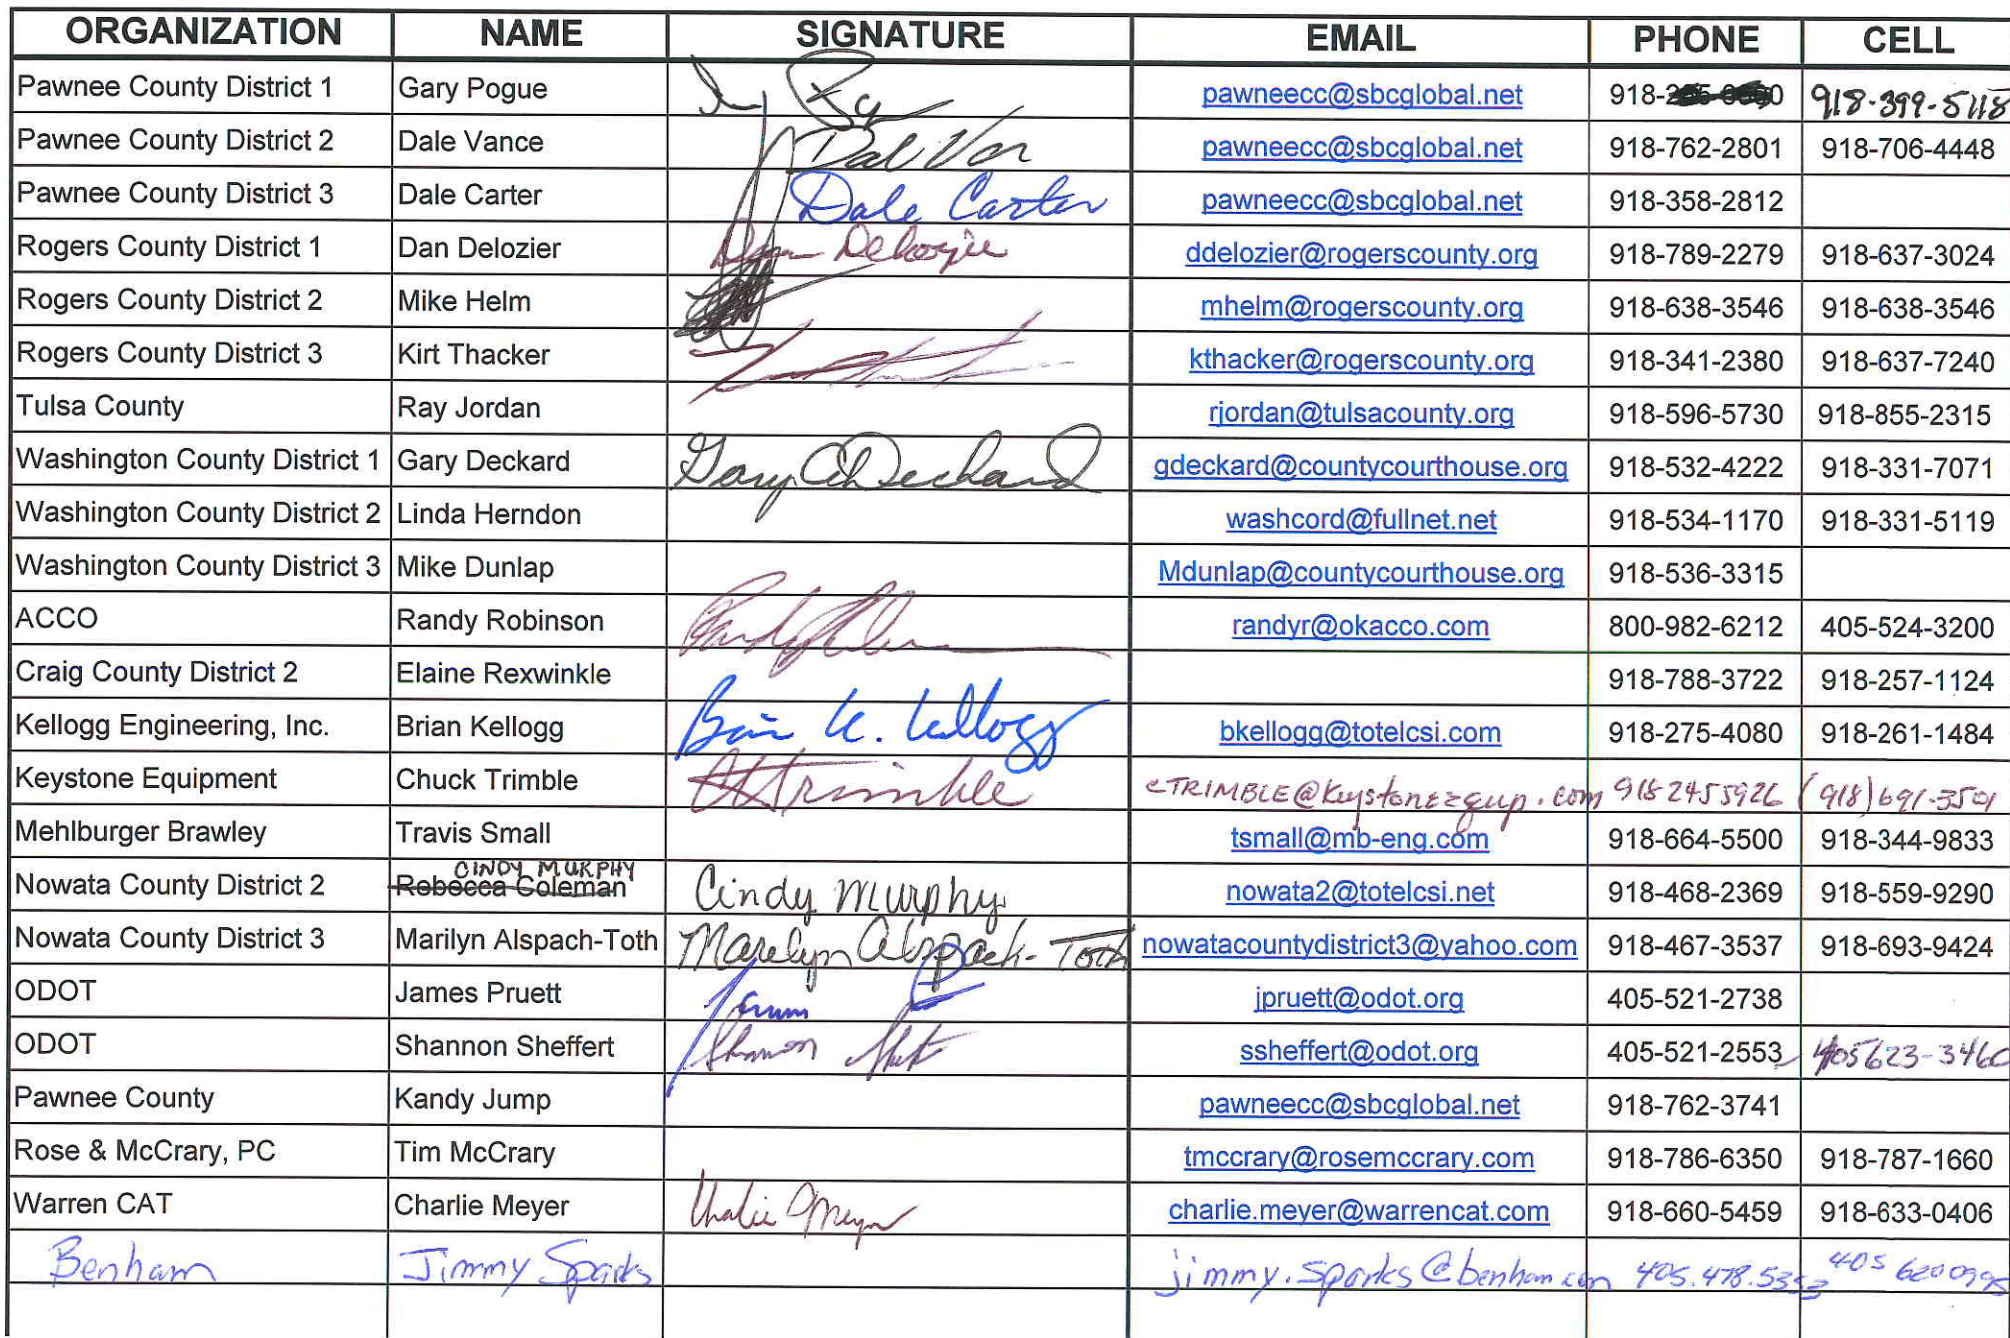 ORGANIZATION NAME SIGNATURE EMAIL PHONE CELL
Pawnee County District 1 Gary Pogue pawneecc@sbcglobal.net 918- 918-399-5118
Pawnee County District 2 Dale Vance Dal Van pawneecc@sbcglobal.net 918-762-2801 918-706-4448
Pawnee County District 3 Dale Carter Dale Carter pawneecc@sbcglobal.net 918-358-2812
Rogers County District 1 Dan Delozier Dan Delozier ddelozier@rogerscounty.org 918-789-2279 918-637-3024
Rogers County District 2 Mike Helm mhelm@rogerscounty.org 918-638-3546 918-638-3546
Rogers County District 3 Kirt Thacker kthacker@rogerscounty.org 918-341-2380 918-637-7240
Tulsa County Ray Jordan rjordan@tulsacounty.org 918-596-5730 918-855-2315
Washington County District 1 Gary Deckard Gary Deckard gdeckard@countycourthouse.org 918-532-4222 918-331-7071
Washington County District 2 Linda Herndon washcord@fullnet.net 918-534-1170 918-331-5119
Washington County District 3 Mike Dunlap Mdunlap@countycourthouse.org 918-536-3315
ACCO Randy Robinson randyr@okacco.com 800-982-6212 405-524-3200
Craig County District 2 Elaine Rexwinkle 918-788-3722 918-257-1124
Kellogg Engineering, Inc. Brian Kellogg Brian K. Kellogg bkellogg@totelcsi.com 918-275-4080 918-261-1484
Keystone Equipment Chuck Trimble CTrimble CTRIMBLE@Keystonezequp.com 918 2455926 (918)691-3501
Mehlburger Brawley Travis Small tsmall@mb-eng.com 918-664-5500 918-344-9833
CINDY MURPHY
Nowata County District 2 Rebecca Coleman Cindy Murphy nowata2@totelcsi.net 918-468-2369 918-559-9290
Nowata County District 3 Marilyn Alspach-Toth Marilyn Alspach-Toth nowatacountydistrict3@yahoo.com 918-467-3537 918-693-9424
ODOT James Pruett James jpruett@odot.org 405-521-2738
ODOT Shannon Sheffert Shannon ssheffert@odot.org 405-521-2553 405 623-3460
Pawnee County Kandy Jump pawneecc@sbcglobal.net 918-762-3741
Rose & McCrary, PC Tim McCrary tmccrary@rosemccrary.com 918-786-6350 918-787-1660
Warren CAT Charlie Meyer Charlie Meyer charlie.meyer@warrencat.com 918-660-5459 918-633-0406
Benham Jimmy Sparks jimmy.sparks@benham.com 405.478.5353 405 620 0995